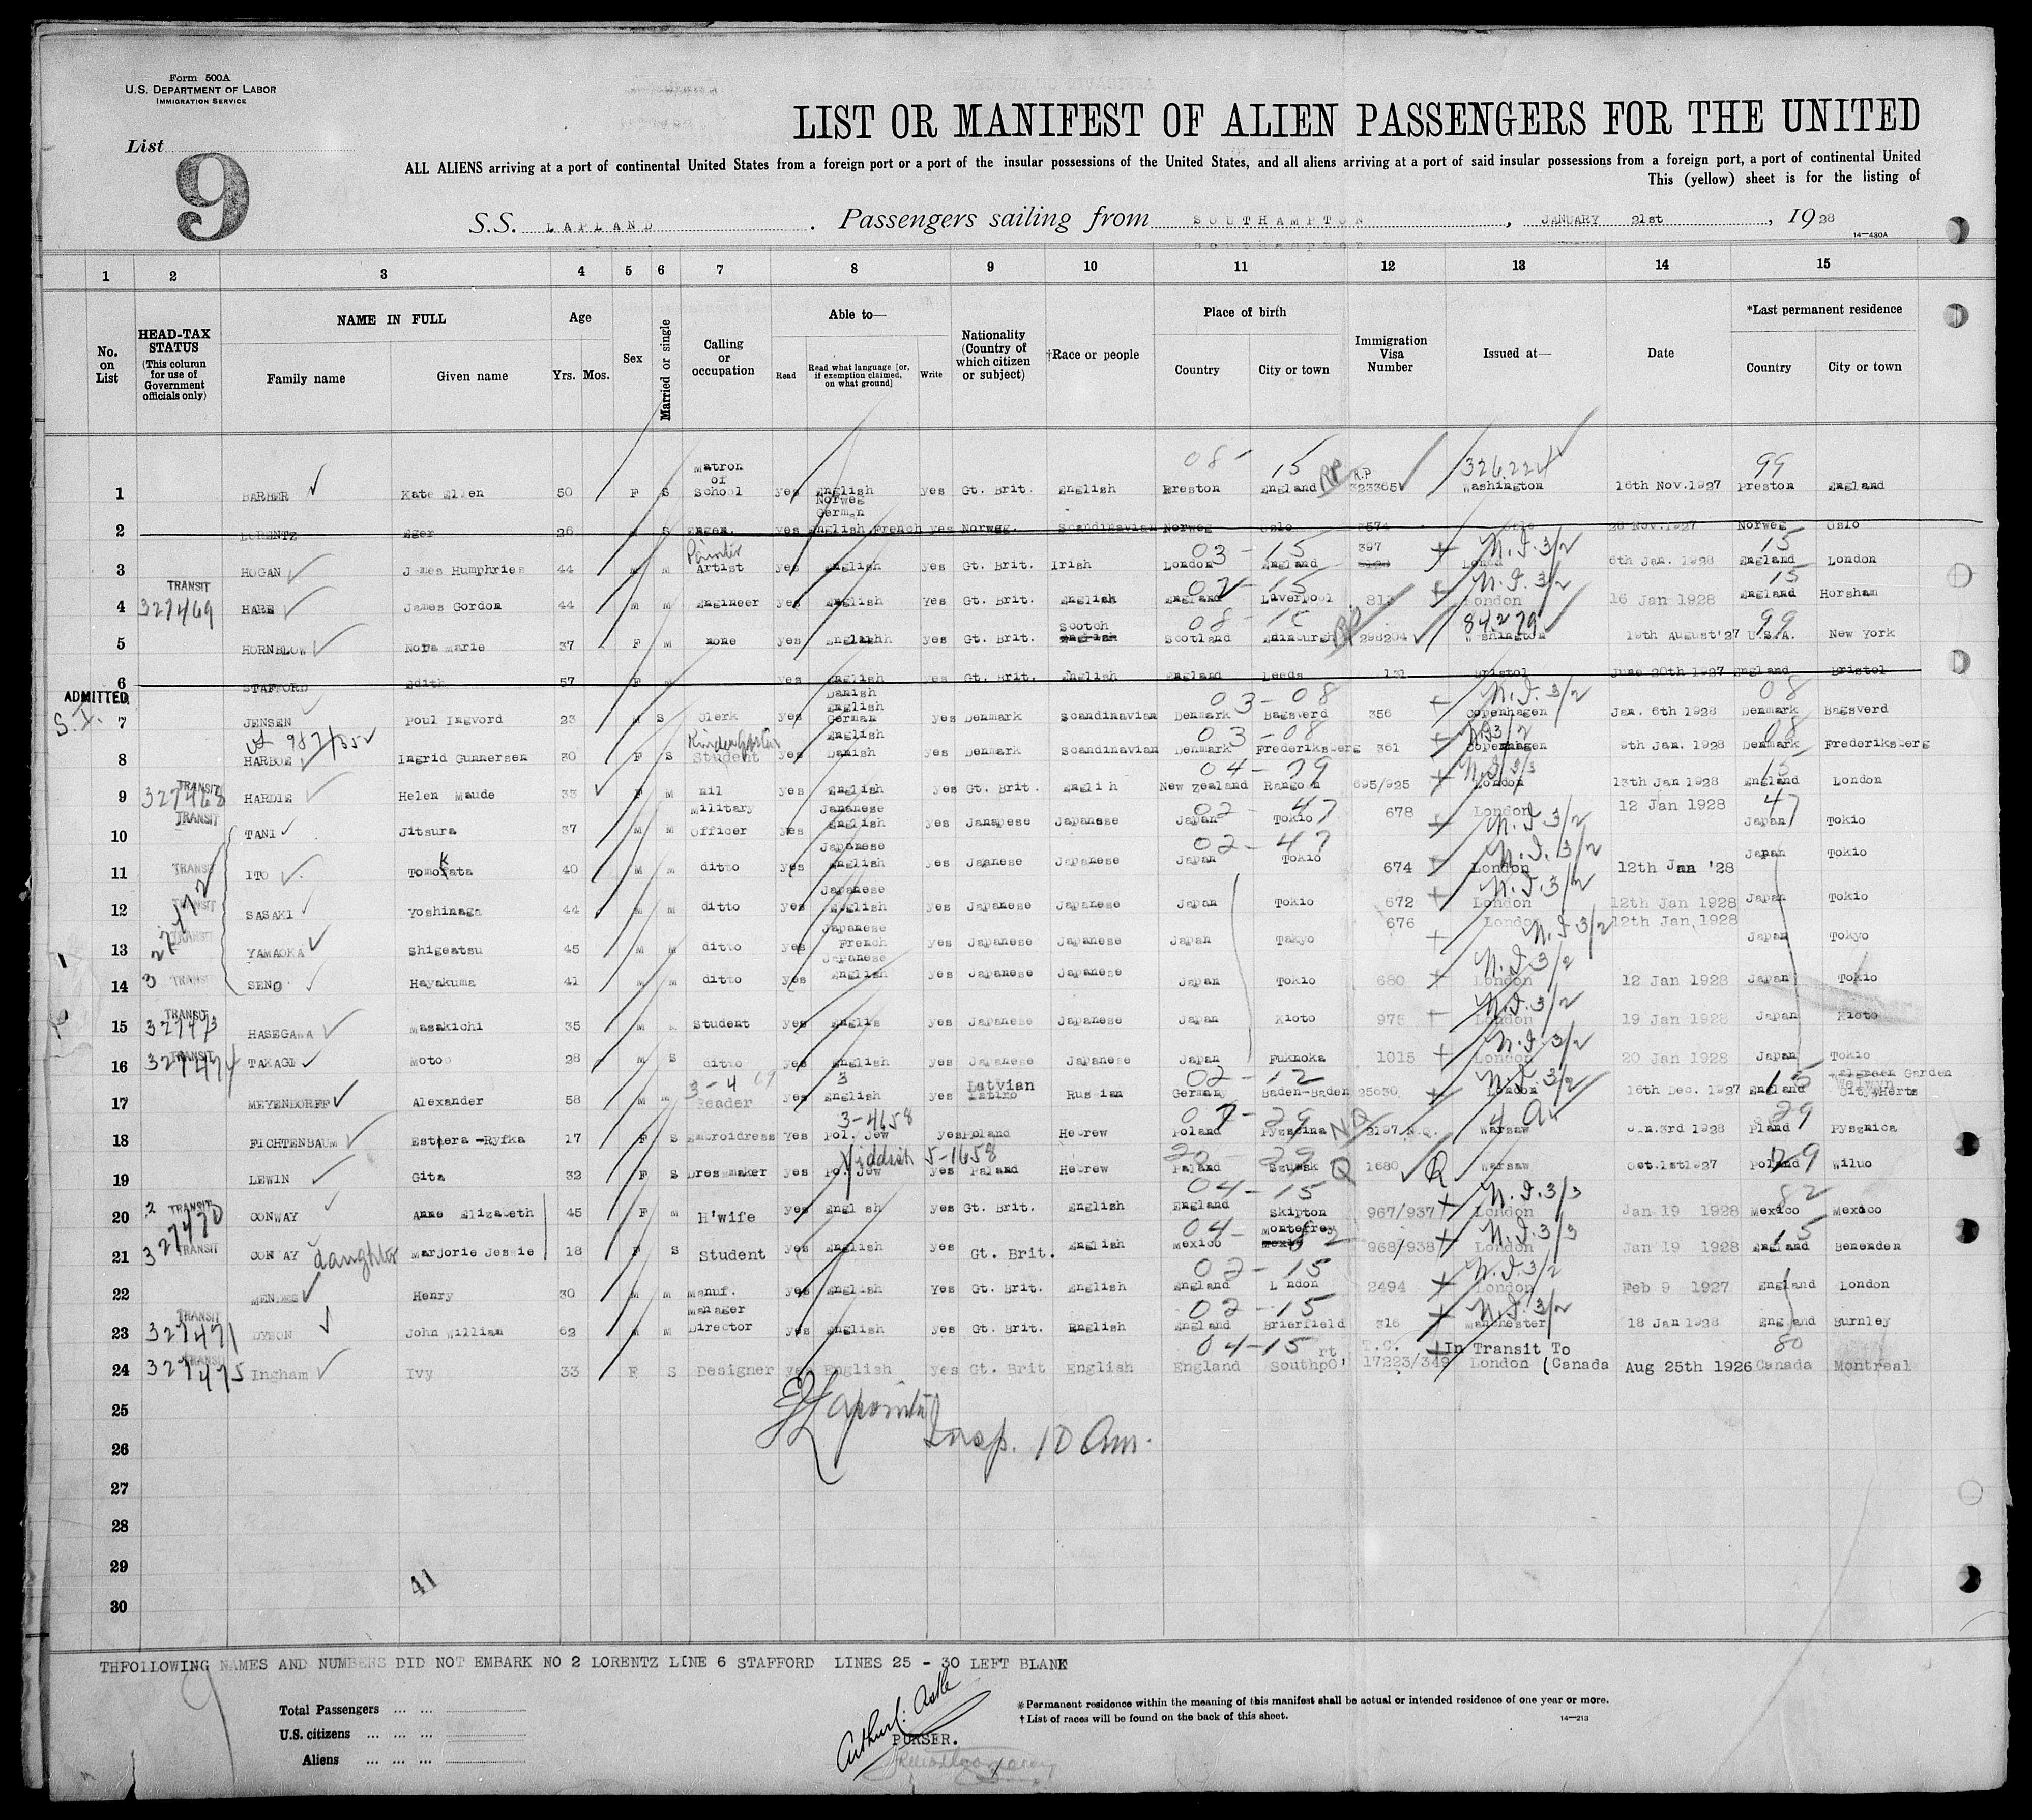 Form 500A
U.S. DEPARTMENT OF LABOR
IMMIGRATION SERVICE
List
9
LIST OR MANIFEST OF ALIEN PASSENGERS FOR THE UNITED
ALL ALIENS arriving at a port of continental United States from a foreign port or a port of the insular possessions of the United States, and all aliens arriving at a port of said insular possessions from a foreign port, a port of continental United
This (yellow) sheet is for the listing of
S.S. LAPLAND . Passengers sailing from SOUTHAMPTON , JANUARY 21st , 1928
14—430A
1 2 3 4 5 6 7 8 9 10 11 12 13 14 15
No. on List
HEAD-TAX STATUS (This column for use of Government officials only)
NAME IN FULL Family name Given name
Age Yrs. Mos.
Sex
Married or single
Calling or occupation
Able to— Read Read what language [or, if exemption claimed, on what ground] Write
Nationality (Country of which citizen or subject)
†Race or people
Place of birth Country City or town
Immigration Visa Number
Issued at—
Date
*Last permanent residence Country City or town
1 BARBER Kate Ellen 50 F S Matron of School yes English yes Gt. Brit. English Preston England R.P 323365 326224 Washington 16th Nov.1927 Preston England 08- 15 99
2 LORENTZ Eger 26 S Engen. yes Norweg German English French yes Norweg. Scandinavian Norweg Oslo 3574 Oslo 26 Nov.1927 Norweg Oslo
3 HOGAN James Humphries 44 M M Painter Artist yes English yes Gt. Brit. Irish London England 03-15 397 N.I.3/2 6th Jan. 1928 England London 15
4 TRANSIT 327469 HARE James Gordon 44 M M Engineer yes English Yes Gt. Brit. English England Liverpool 02-15 813 N.I.3/2 London 16 Jan 1928 England Horsham 15
5 HORNBLOW Nora Marie 37 F M none yes English yes Gt. Brit. Scotch Scotland Edinburgh RP 298204 84279 Washington 19th August'27 U.S.A. New York 99
6 STAFFORD Edith 57 F M yes English yes Gt. Brit. English England Leeds 131 Bristol June 20th 1927 England Bristol
ADMITTED S.I.
7 JENSEN Poul Ingvord 23 M S Clerk yes Danish English German yes Denmark Scandinavian Denmark Bagsverd 03-08 356 N.I.3/2 Copenhagen Jan. 6th 1928 Denmark Bagsverd 08
8 HARBOE Ingrid Gunnersen 30 F S Kindergarten Student yes English Danish yes Denmark Scandinavian Denmark Frederiksberg 03-08 361 Copenhagen 9th Jan. 1928 Denmark Frederiksberg 08
9 TRANSIT 327468 HARDIE Helen Maude 33 F M nil yes English yes Gt. Brit. Englih New Zealand 04-79 695/925 N.I.3/3 London 13th Jan 1928 England London 15
10 TRANSIT TANI Jitsura 37 M M Military Officer yes Japanese English yes Janapese Japanese Japan Tokio 02-47 678 London N.I.3/2 12 Jan 1928 Japan Tokio 47
11 TRANSIT ITO 40 M M ditto yes Japanese English yes Japanese Japanese Japan Tokio 02-47 674 N.I.3/2 London 12th Jan '28 Japan Tokio
12 TRANSIT SASAKI Yoshinaga 44 M M ditto yes Japanese English yes Japanese Japanese Japan Tokio 672 N.I.3/2 London 12th Jan 1928 Japan Tokio
13 TRANSIT YAMAOKA Shigeatsu 45 M M ditto yes Japanese French yes Japanese Japanese Japan Tokyo 676 London N.I.3/2 12th Jan,1928 Japan Tokyo
14 TRANSIT SENO Hayakuma 41 M M ditto yes Japanese English yes Japanese Japanese Japan Tokio 680 N.I.3/2 London 12 Jan 1928 Japan Tokio
15 TRANSIT 327473 HASEGAWA Masakichi 35 M Student yes Englis yes Japanese Japanese Japan Kioto 975 N.I.3/2 London 19 Jan 1928 Japan Kioto
16 TRANSIT 327474 TAKAGI Motoo 28 M S ditto yes English yes Japanese Japanese Japan Fukuoka 1015 N.I.3/2 London 20 Jan 1928 Japan Tokio
17 MEYENDORFF Alexander 58 M M Reader yes English yes Latvian Russian Germany Baden-Baden 02-12 25630 N.I.3/2 London 16th Dec. 1927 England Welwyn Garden City Herts 15
18 FICHTENBAUM Estera -Ryfka 17 F S Embroidress Yes Pol. Jew 3-4658 yes Poland Hebrew Poland 07-29 2197 N.Q. Warsaw Jan.3rd 1928 Pland Pysznica 29
19 LEWIN Gita 32 F S Dressmaker yes Po. Jew Yiddish 5-1658 yes Paland Hebrew Paland Q 1680 Q Warsaw Oct.1st1927 Poland Wilno 29
20 TRANSIT CONWAY Anne Elizabeth 45 F M H'wife yes English yes Gt. Brit. English England Skipton 04-15 967/937 N.I.3/3 London Jan 19 1928 Mexico Mexico 82
21 327470 TRANSIT CONWAY daughter Marjorie Jessie 18 F S Student yes English yes Gt. Brit. English Mexico 04-82 968/938 N.I.3/3 London Jan 19 1928 England Benenden 15
22 MENDES Henry 30 M M Manuf. yes English Yes Gt. Brit. English England London 02-15 2494 N.I.3/2 London Feb 9 1927 England London
23 TRANSIT 327471 DYSON John William 62 M M Manager Director yes English yes Gt. Brit. English England Brierfield 02-15 316 N.I.3/2 Manchester 18 Jan 1928 England Burnley
24 TRANSIT 327475 Ingham Ivy 33 F S Designer yes English yes Gt. Brit English England Southport 04-15 T.C. 17223/349 In Transit To London (Canada Aug 25th 1926 Canada Montreal 80
25
Insp. 10 Am.
26
27
28
29
41
30
THFOLLOWING NAMES AND NUMBERS DID NOT EMBARK NO 2 LORENTZ LINE 6 STAFFORD LINES 25 - 30 LEFT BLANK
Total Passengers ... ...
U.S. citizens ... ... ...
Aliens ... ... ...
PURSER.
* Permanent residence within the meaning of this manifest shall be actual or intended residence of one year or more.
† List of races will be found on the back of this sheet.
14—213